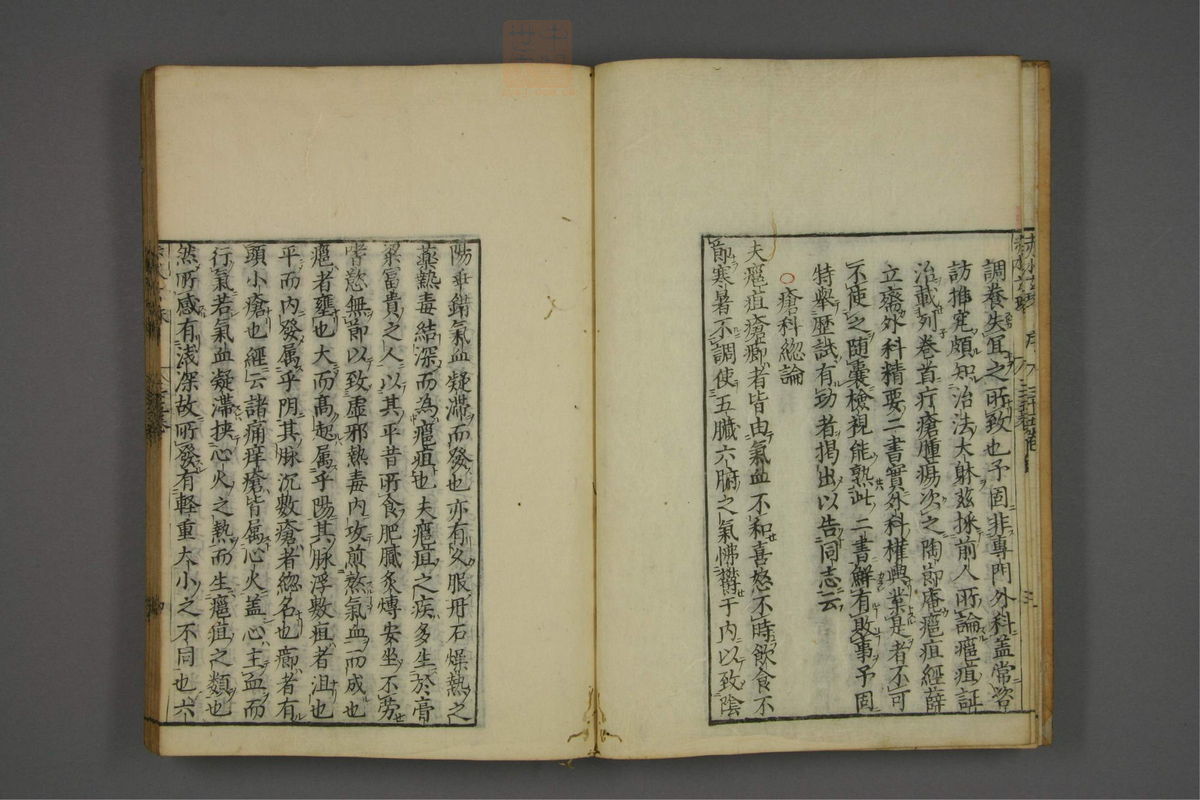 調養失宜之所致也予固非專門外科蓋常咨
訪推究頗知治法大躰玆採前人所論癰疽証
治載列卷首疔瘡腫瘍次之陶節庵癰疽經薛
立齋外科精要二書實外科權輿業是者不可
不莊之随囊檢視能熟此二書鮮有敗事予固
特舉歴試有功者掲出以告同志云
○瘡科総論
夫癰疽瘡癤者皆由氣血不和喜怒不時飲食不
節寒暑不調使五臟六腑之氣怫欝于内以致陰
陽乖錯氣血凝滯而發也亦有久服丹石燥熱之
藥熱毒結深而為癰疽也夫癰疽之疾多生於膏
梁冨貴之人以其平昔所食肥膩炙煿安坐不労
嗜慾無節以致虚邪熱毒内攻煎熬氣血而成也
癰者壅也大而髙起属乎陽其脉浮數疽者沮也
平而内發属乎阴其脉沉數瘡者総名也癤者有
頭小瘡也經云諸痛痒瘡皆属心火蓋心主血而
行氣若氣血凝滯挾心火之熱而生癰疽之類也
然所感有淺深故所發有軽重大小之不同也六